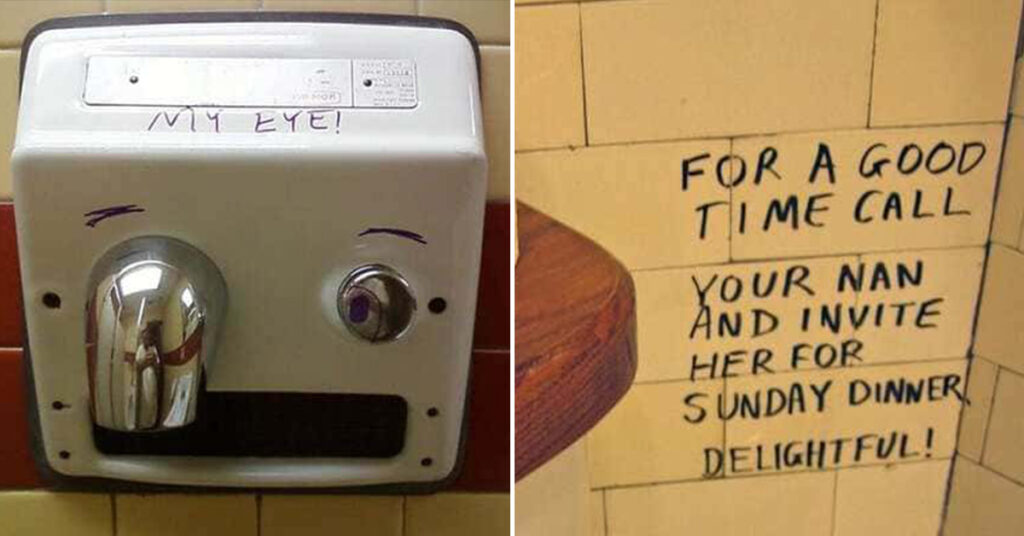 MY EYE!
FOR A GOOD
TIME CALL
YOUR NAN
AND INVITE
HER FOR
SUNDAY DINNER,
DELIGHTFUL!